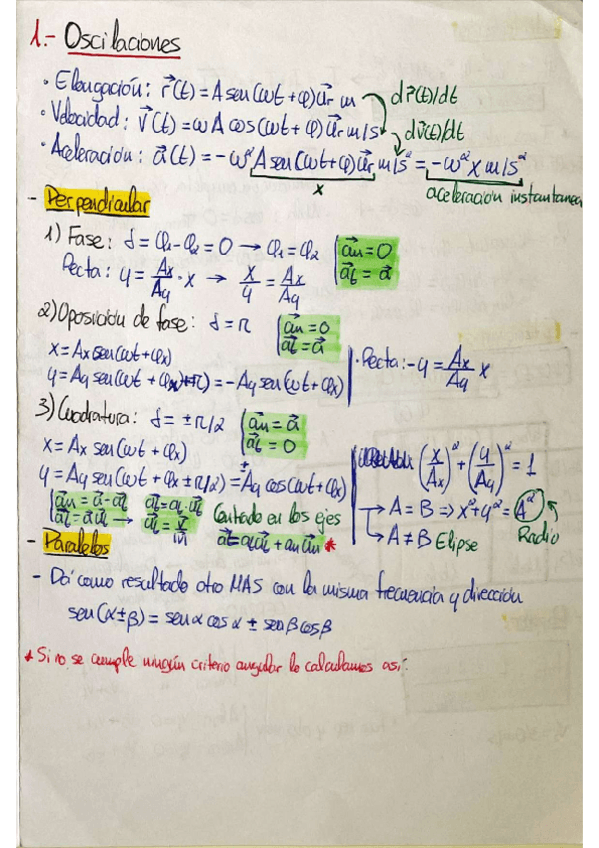 1.- Oscilaciones
· Elongación: r⃗(t) = A sen(ωt + φ) u⃗r m dr⃗(t)/dt
· Velocidad: v⃗(t) = ωA cos(ωt + φ) u⃗r m/s dv⃗(t)/dt
· Aceleración: a⃗(t) = -ω² A sen(ωt + φ) u⃗r m/s² = -ω² x m/s²
x aceleración instantanea
- Perpendicular
1) Fase: δ = φ1 - φ2 = 0 → φ1 = φ2 a⃗n = 0
a⃗t = a⃗
Recta: y = Ax/Ay · x → x/y = Ax/Ay
2) Oposición de fase: δ = π a⃗n = 0
a⃗t = a⃗
x = Ax sen(ωt + φx)
y = Ay sen(ωt + φx + π) = -Ay sen(ωt + φx)
· Recta: -y = Ax/Ay x
3) Cuadratura: δ = ± π/2 a⃗n = a⃗
a⃗t = 0
x = Ax sen(ωt + φx)
y = Ay sen(ωt + φx ± π/2) = ± Ay cos(ωt + φx)
(x/Ax)² + (y/Ay)² = 1
→ A = B => x² + y² = A² Radio
→ A ≠ B Elipse
a⃗n = a⃗ - a⃗t
Centrado en los ejes
- Paralelos
- Da como resultado otro MAS con la misma frecuencia y dirección
sen(α ± β) = sen α cos α ± sen β cos β
* Si no se cumple ningún criterio angular le calculamos así: